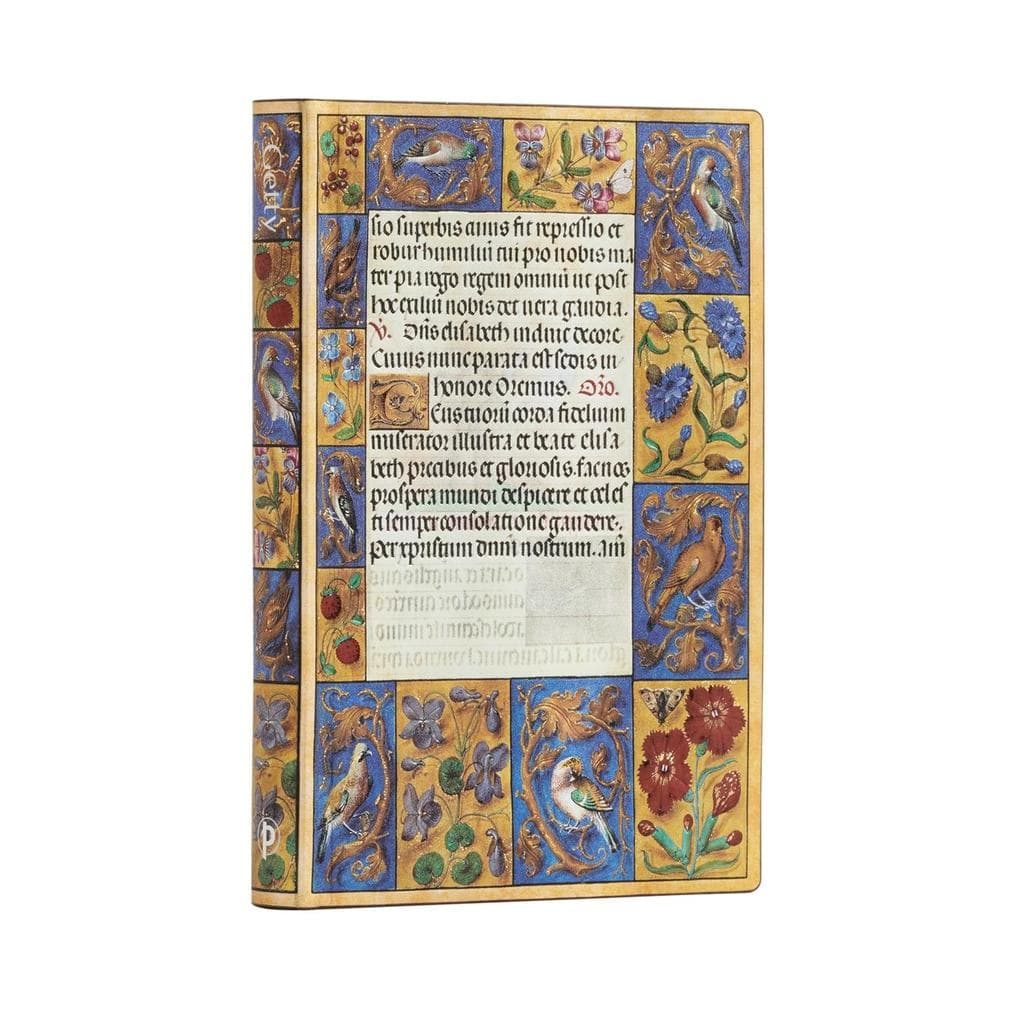 Getty
sio superbis cuius fit repressio et
robur humiliū cui pro nobis ma
ter pia rogo regem omniū ut post
hoc exiliū nobis det vera gaudia.
V. Dn̄s elisabeth induit decore
Cuius nunc parata est sedis in
honore Oremus. Orō.
Eus tuorū corda fidelium
miserator illustra et beate elisa
beth precibus et gloriosis. fac nos
prospera mundi despicere et celes
ti semper consolatione gaudere.
Per xpristum dnm̄ nostrum. am̄
P